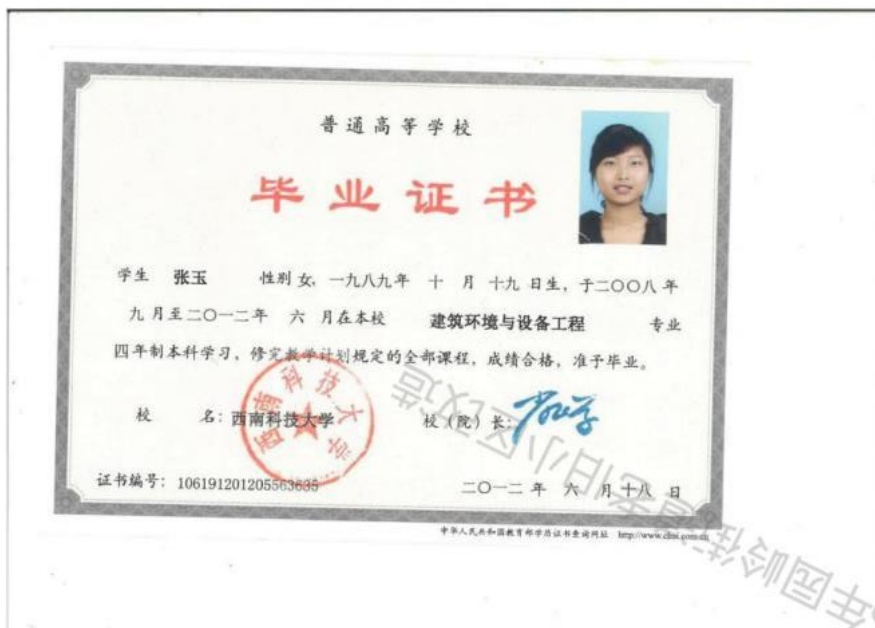 普通高等学校
毕业证书
学生 张玉 性别 女, 一九八九年 十 月 十九 日生, 于二〇〇八年
九月至二〇一二年 六 月在本校 建筑环境与设备工程 专业
四年制本科学习, 修完教学计划规定的全部课程, 成绩合格, 准予毕业。
校 名: 西南科技大学 校(院)长:
西南科技大学
证书编号: 106191201205563635 二〇一二 年 六 月 十八 日
中华人民共和国教育部学历证书查询网址 http://www.chsi.com.cn
年园岭街道老旧小区改造